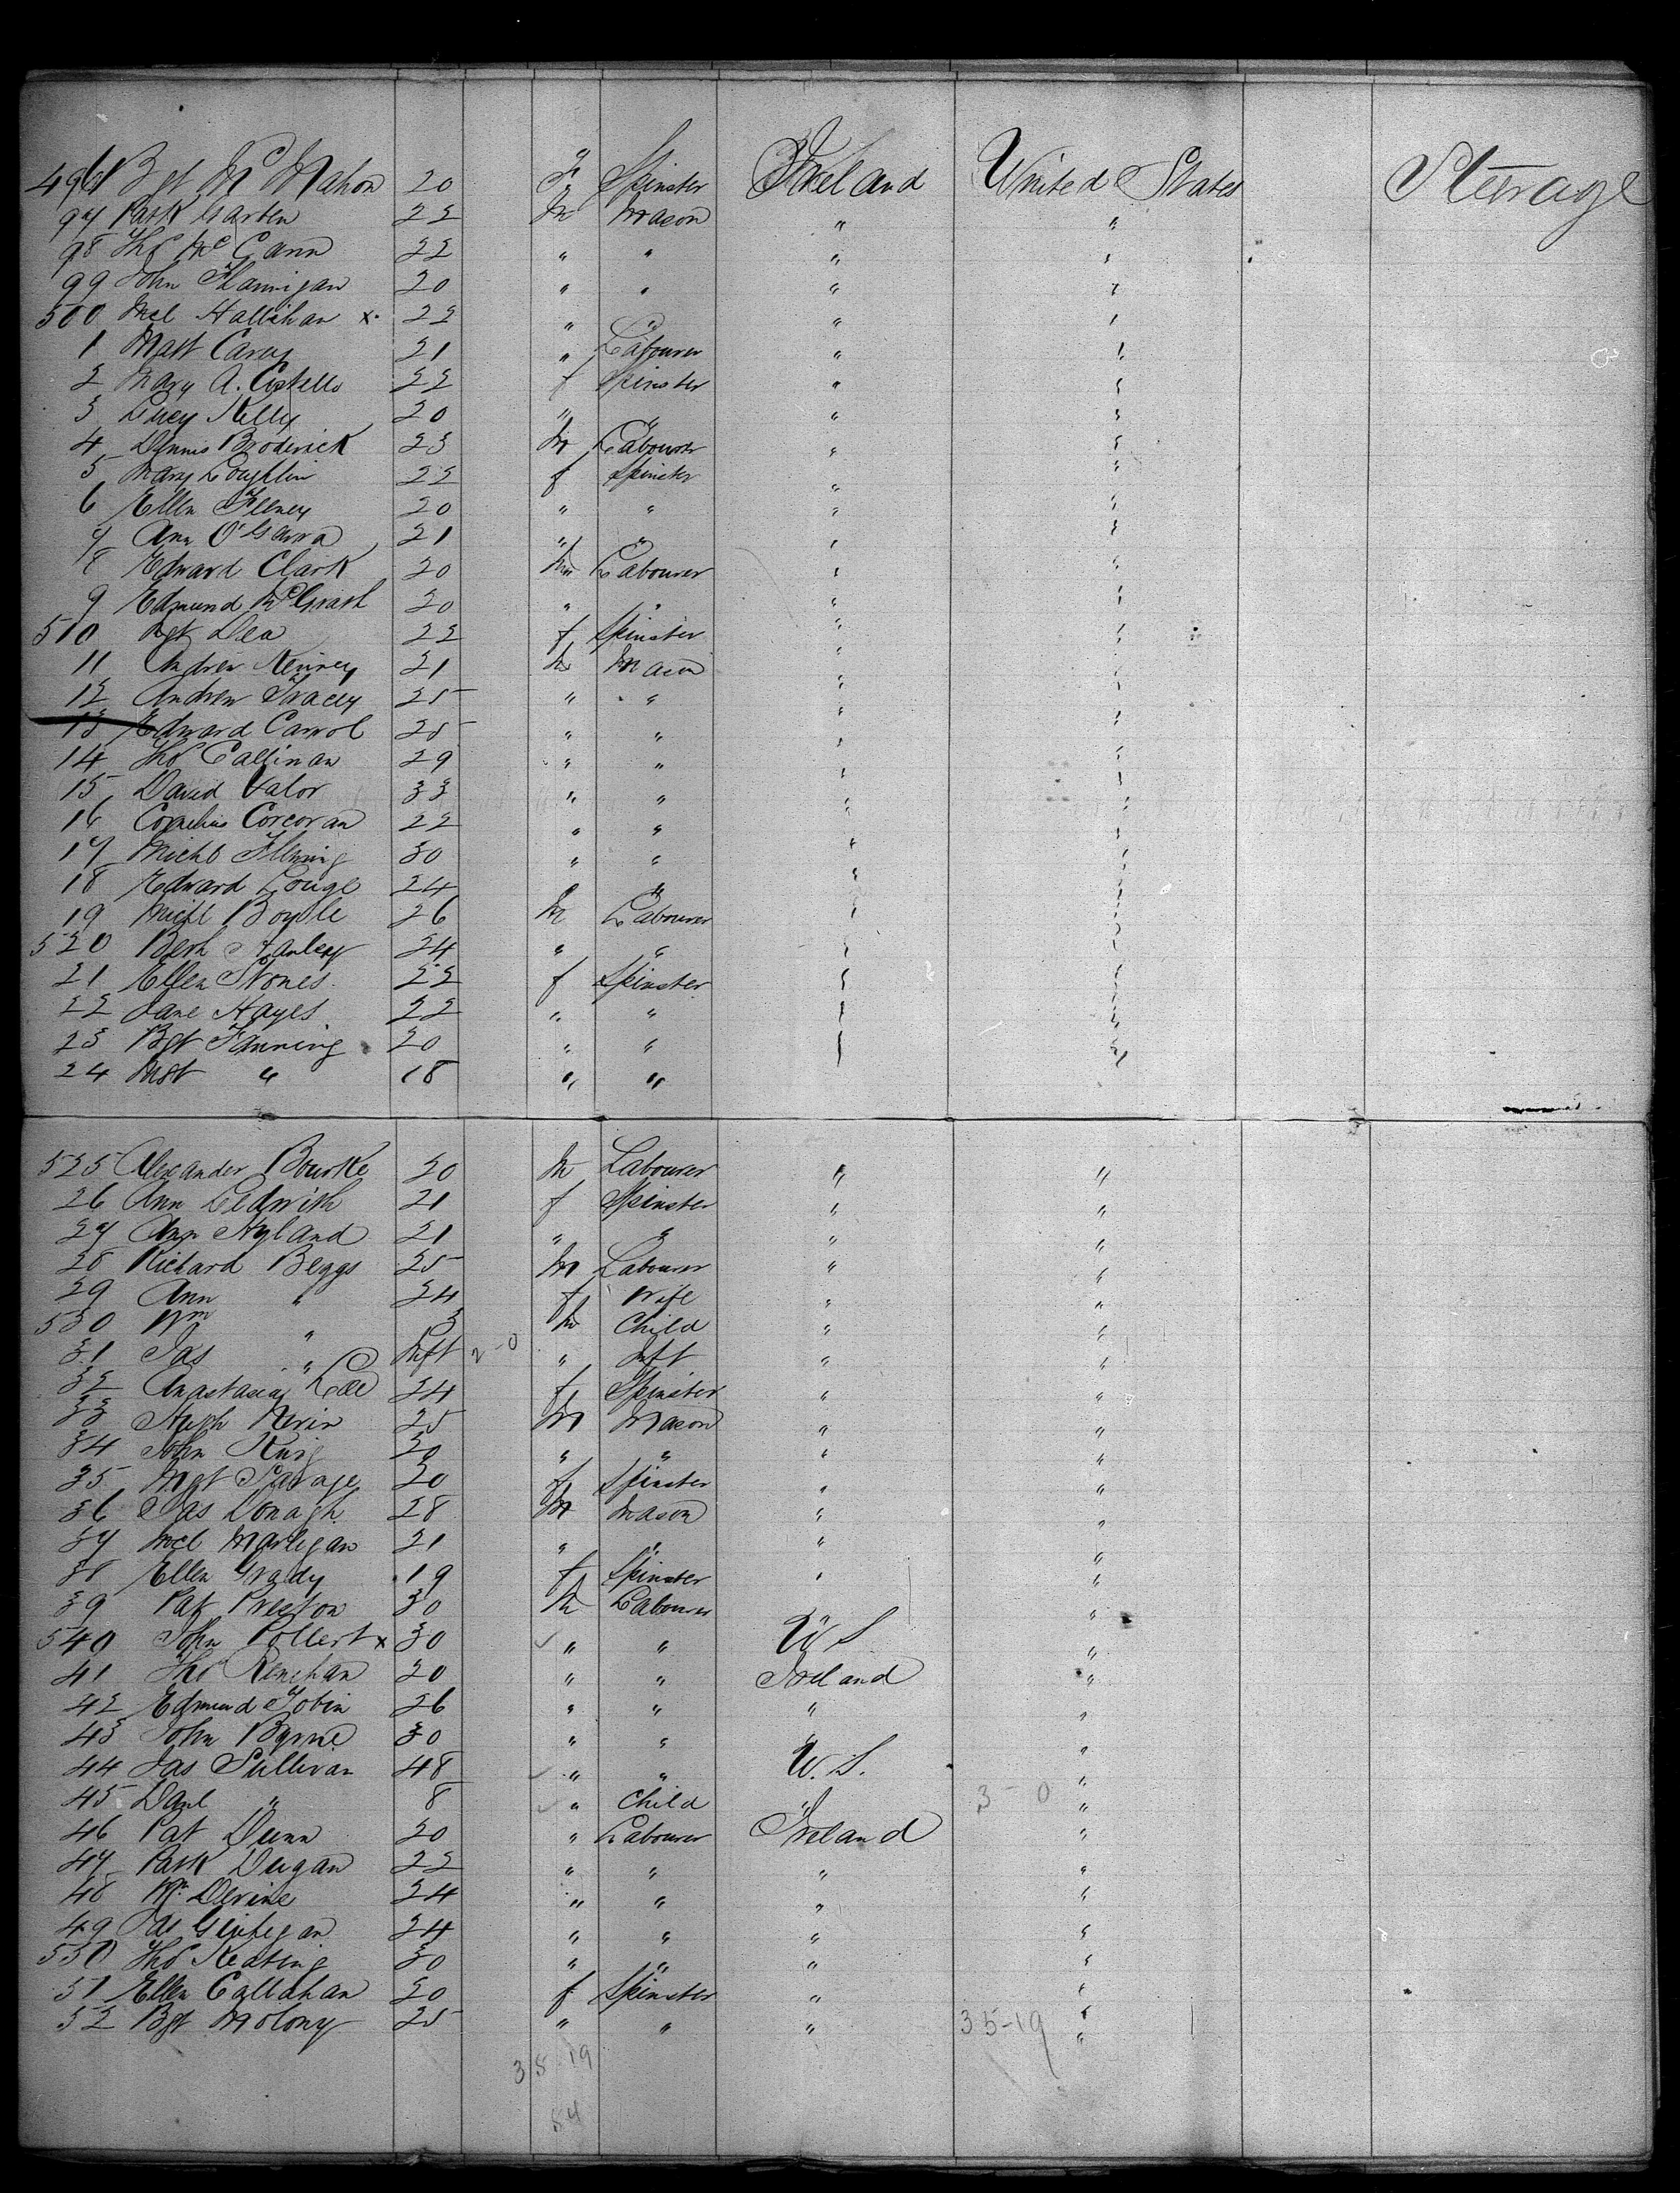 496 Bgt McMahon 20 F Spinster Ireland United States Steerage
97 Patk Garten 22 M Mason " "
98 Thos McCann 22 " " " "
99 John Flannigan 20 " " " "
500 Mcl Hallihan x 22 " " " "
1 Matt Carey 21 " Labourer " "
2 Mary A. Costello 22 f Spinster " "
3 Lucy Kelly 20 " " " "
4 Dennis Broderick 23 M Labourer " "
5 Mary Loughlin 22 f Spinster " "
6 Ellen Feeney 20 " " " "
7 Ann O'Garra 21 " " " "
8 Edward Clark 20 M Labourer " "
9 Edmund McGrath 20 " " " "
510 Bgt Dea 22 f Spinster " "
11 Andrew Kenney 21 M Mason " "
12 Andrew Tracey 25 " " " "
13 Edward Carrol 25 " " " "
14 Thos Callinan 29 " " " "
15 David Lalor 33 " " " "
16 Cornelius Corcoran 22 " " " "
17 Michl Fleming 30 " " " "
18 Edward 24 " " " "
19 Michl Boyle 26 M Labourer " "
520 Hanley 24 " " " "
21 Ellen Stones 22 f Spinster " "
22 Jane Hayes 22 " " " "
23 Bgt Fanning 20 " " " "
24 Mgt " 18 " "
525 Alexander Bourke 20 M Labourer " "
26 Ann Ledwith 21 f Spinster " "
27 Ann Hyland 21 " " " "
28 Richard Beggs 25 M Labourer " "
29 Ann " 24 f Wife " "
530 Wm " 3 M Child " "
31 Jas " Inft 2-0 " Inft " "
32 Anastasia Lee 24 f Spinster " "
33 Steph Nevin 25 M Mason " "
34 John King 20 " " " "
35 Mgt Savage 20 f Spinster " "
36 Jas Donagh 28 M Mason " "
37 Mcl 21 " " " "
38 Ellen Grady 19 f Spinster " "
39 Pat Preston 30 M Labourer "
540 John Pollert x 30 " " U S "
41 Thos Renehan 20 " " Ireland "
42 Edmund Tobin 26 " " " "
43 John Byrne 30 " " " "
44 Jas Sullivan 48 " " U.S. "
45 Danl " 8 " Child " 3-0 "
46 Pat Dunn 20 " Labourer Ireland "
47 Patk Dugan 22 " " " "
48 Devine 24 " " " "
49 24 " " " "
550 Thos Keating 30 " " " "
51 Ellen Callahan 20 f Spinster " "
52 Bgt Molony 25 " " " 35-19 "
35-19
54